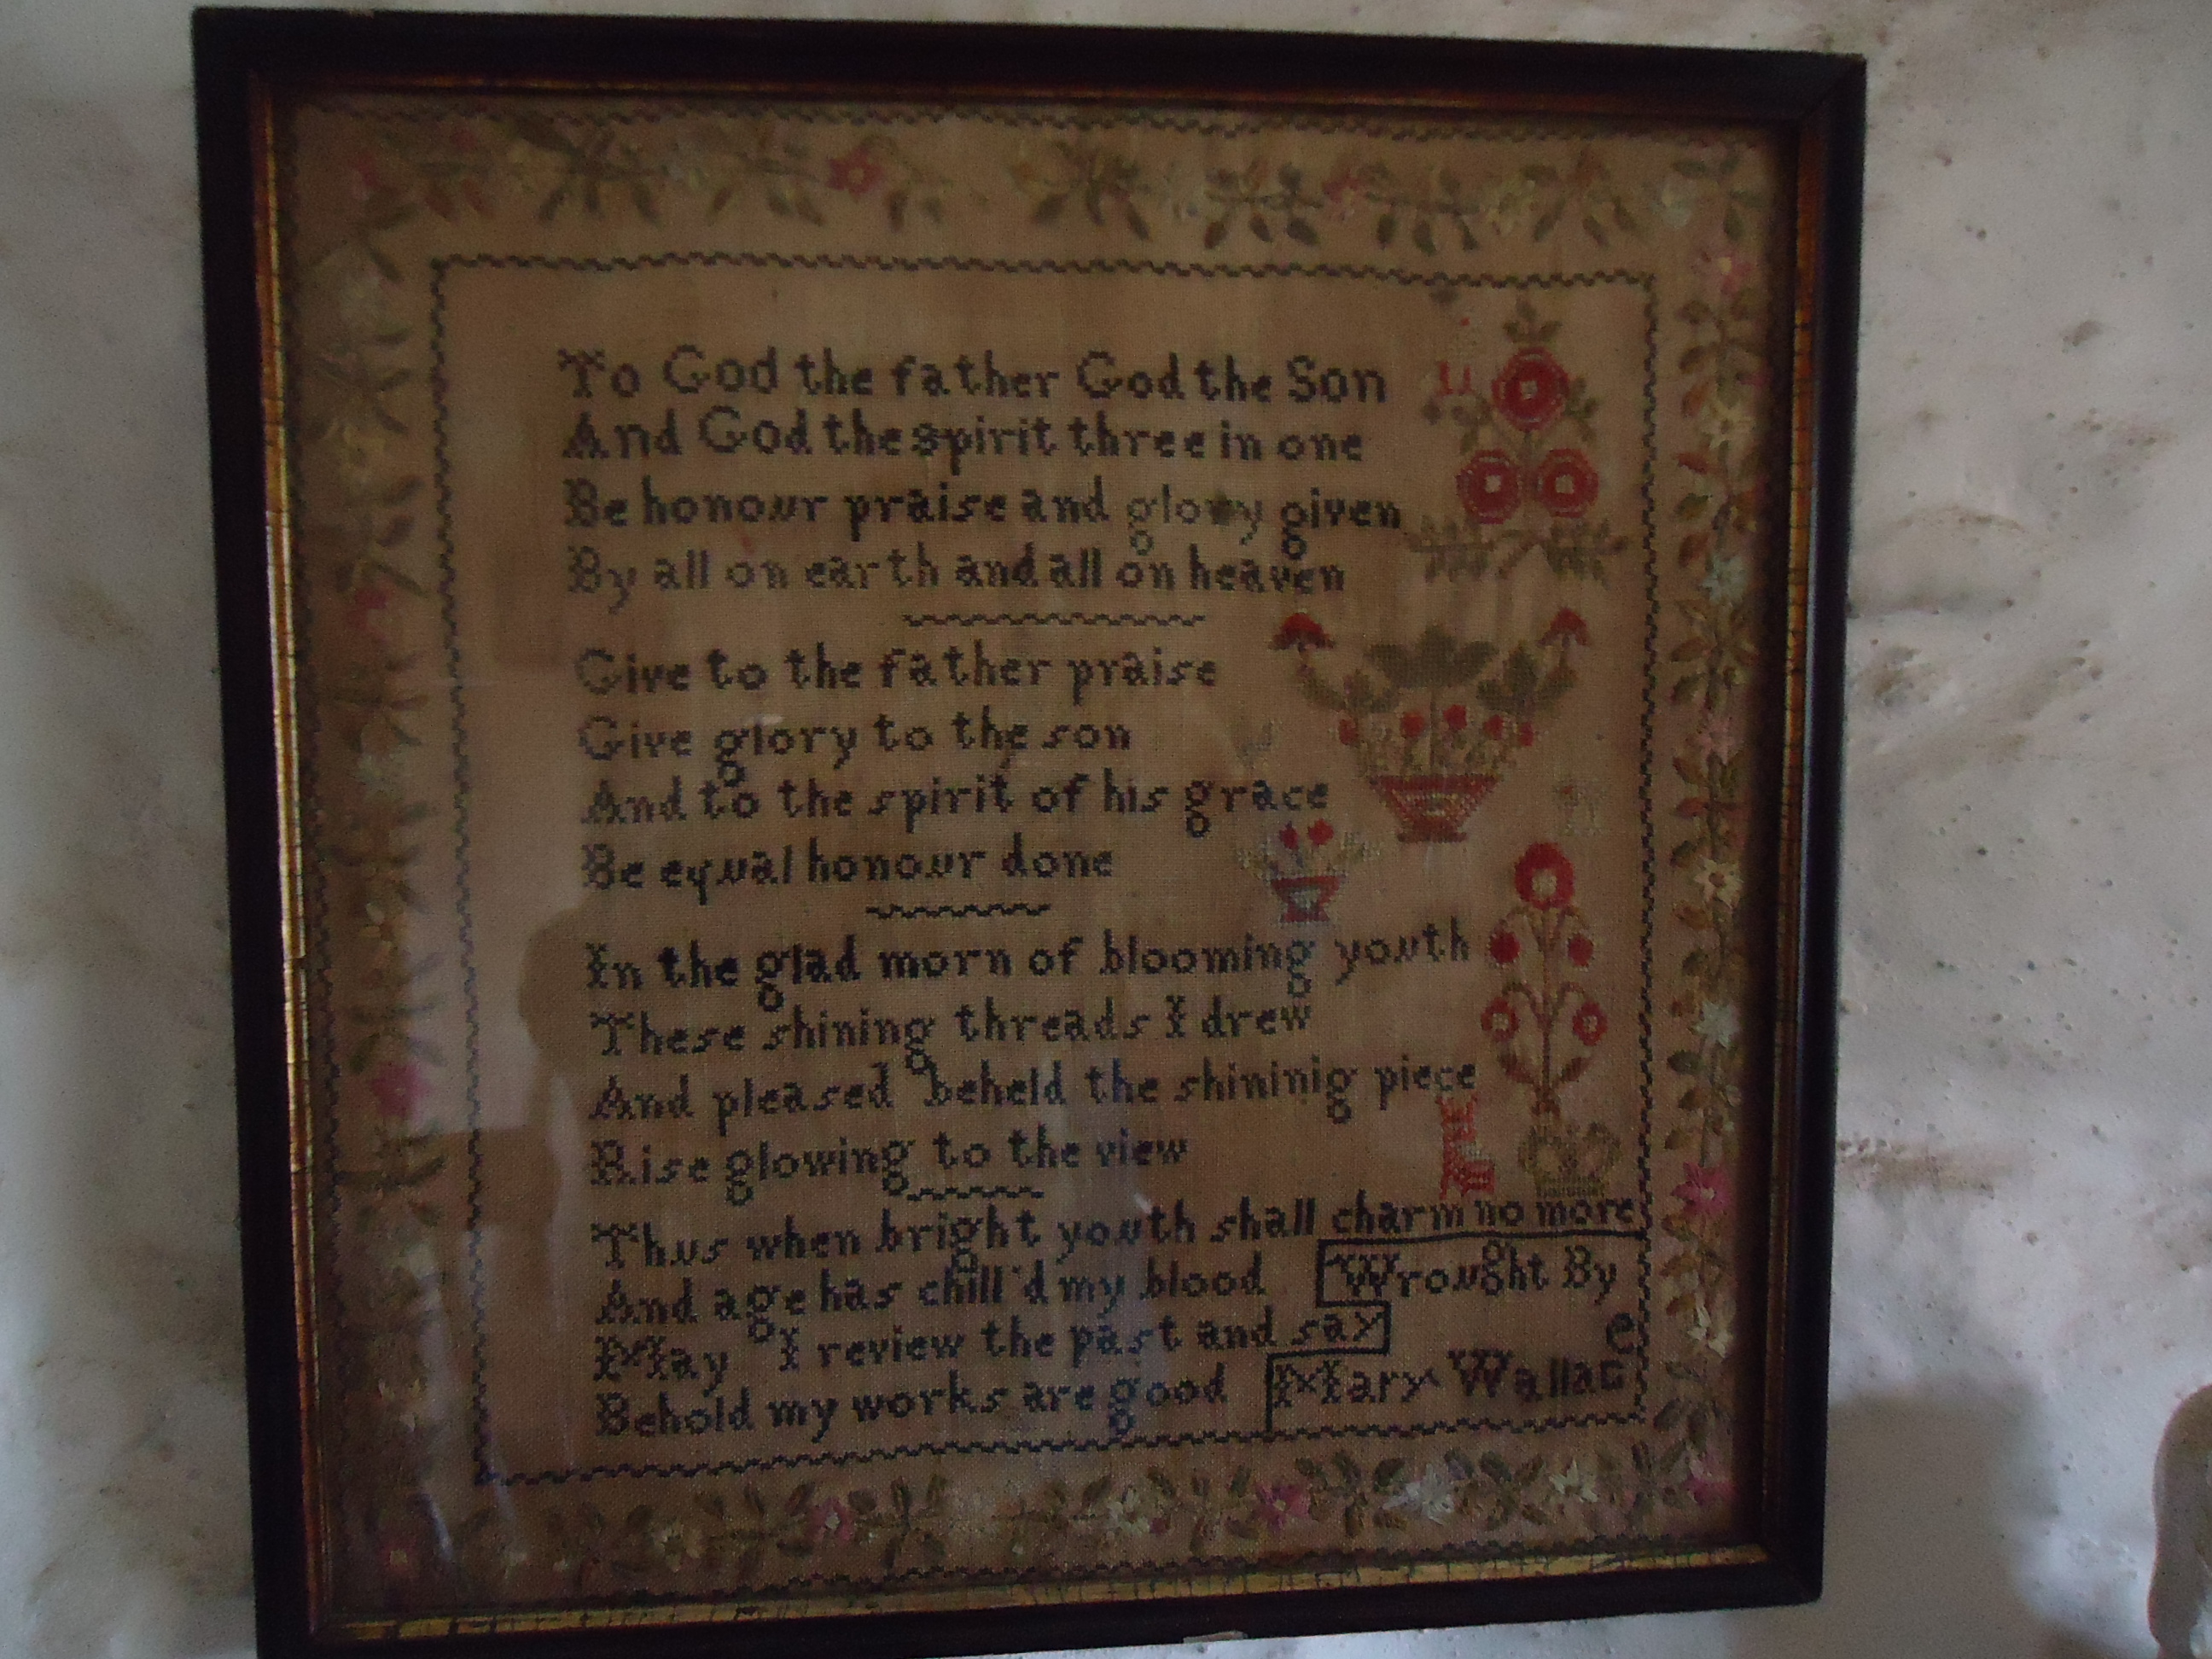 To God the father God the Son
And God the spirit three in one
Be honour praise and glory given
By all on earth and all on heaven
Give to the father praise
Give glory to the son
And to the spirit of his grace
Be equal honour done
In the glad morn of blooming youth
These shining threads I drew
And pleased beheld the shininig piece
Rise glowing to the view
Thus when bright youth shall charm no more
And age has chill'd my blood
May I review the past and say
Behold my works are good
Wrought By
Mary Wallace